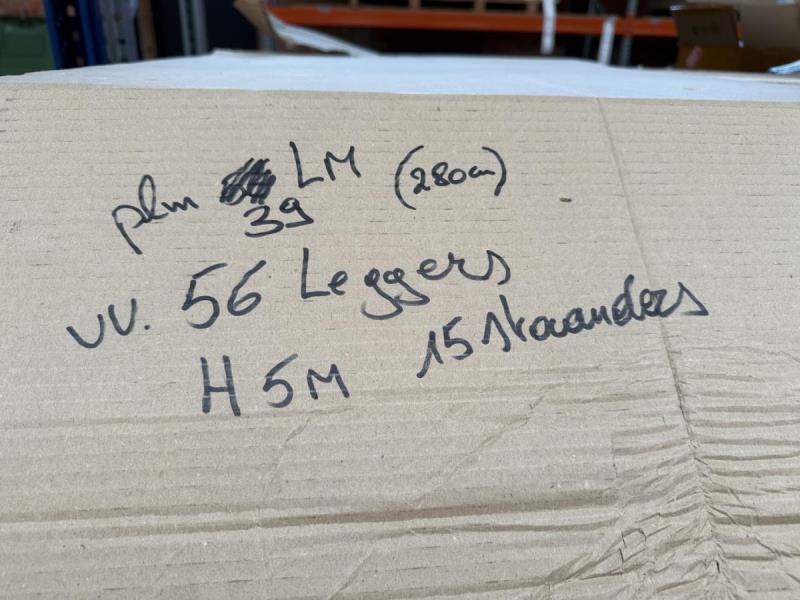 plm LM (280cm)
39
vv. 56 Leggers
H 5M 15 staanders